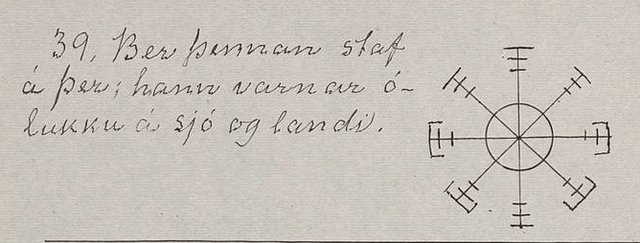 39. Ber þennan staf
á þer; hann varnar ó-
lukku á sjó og landi.